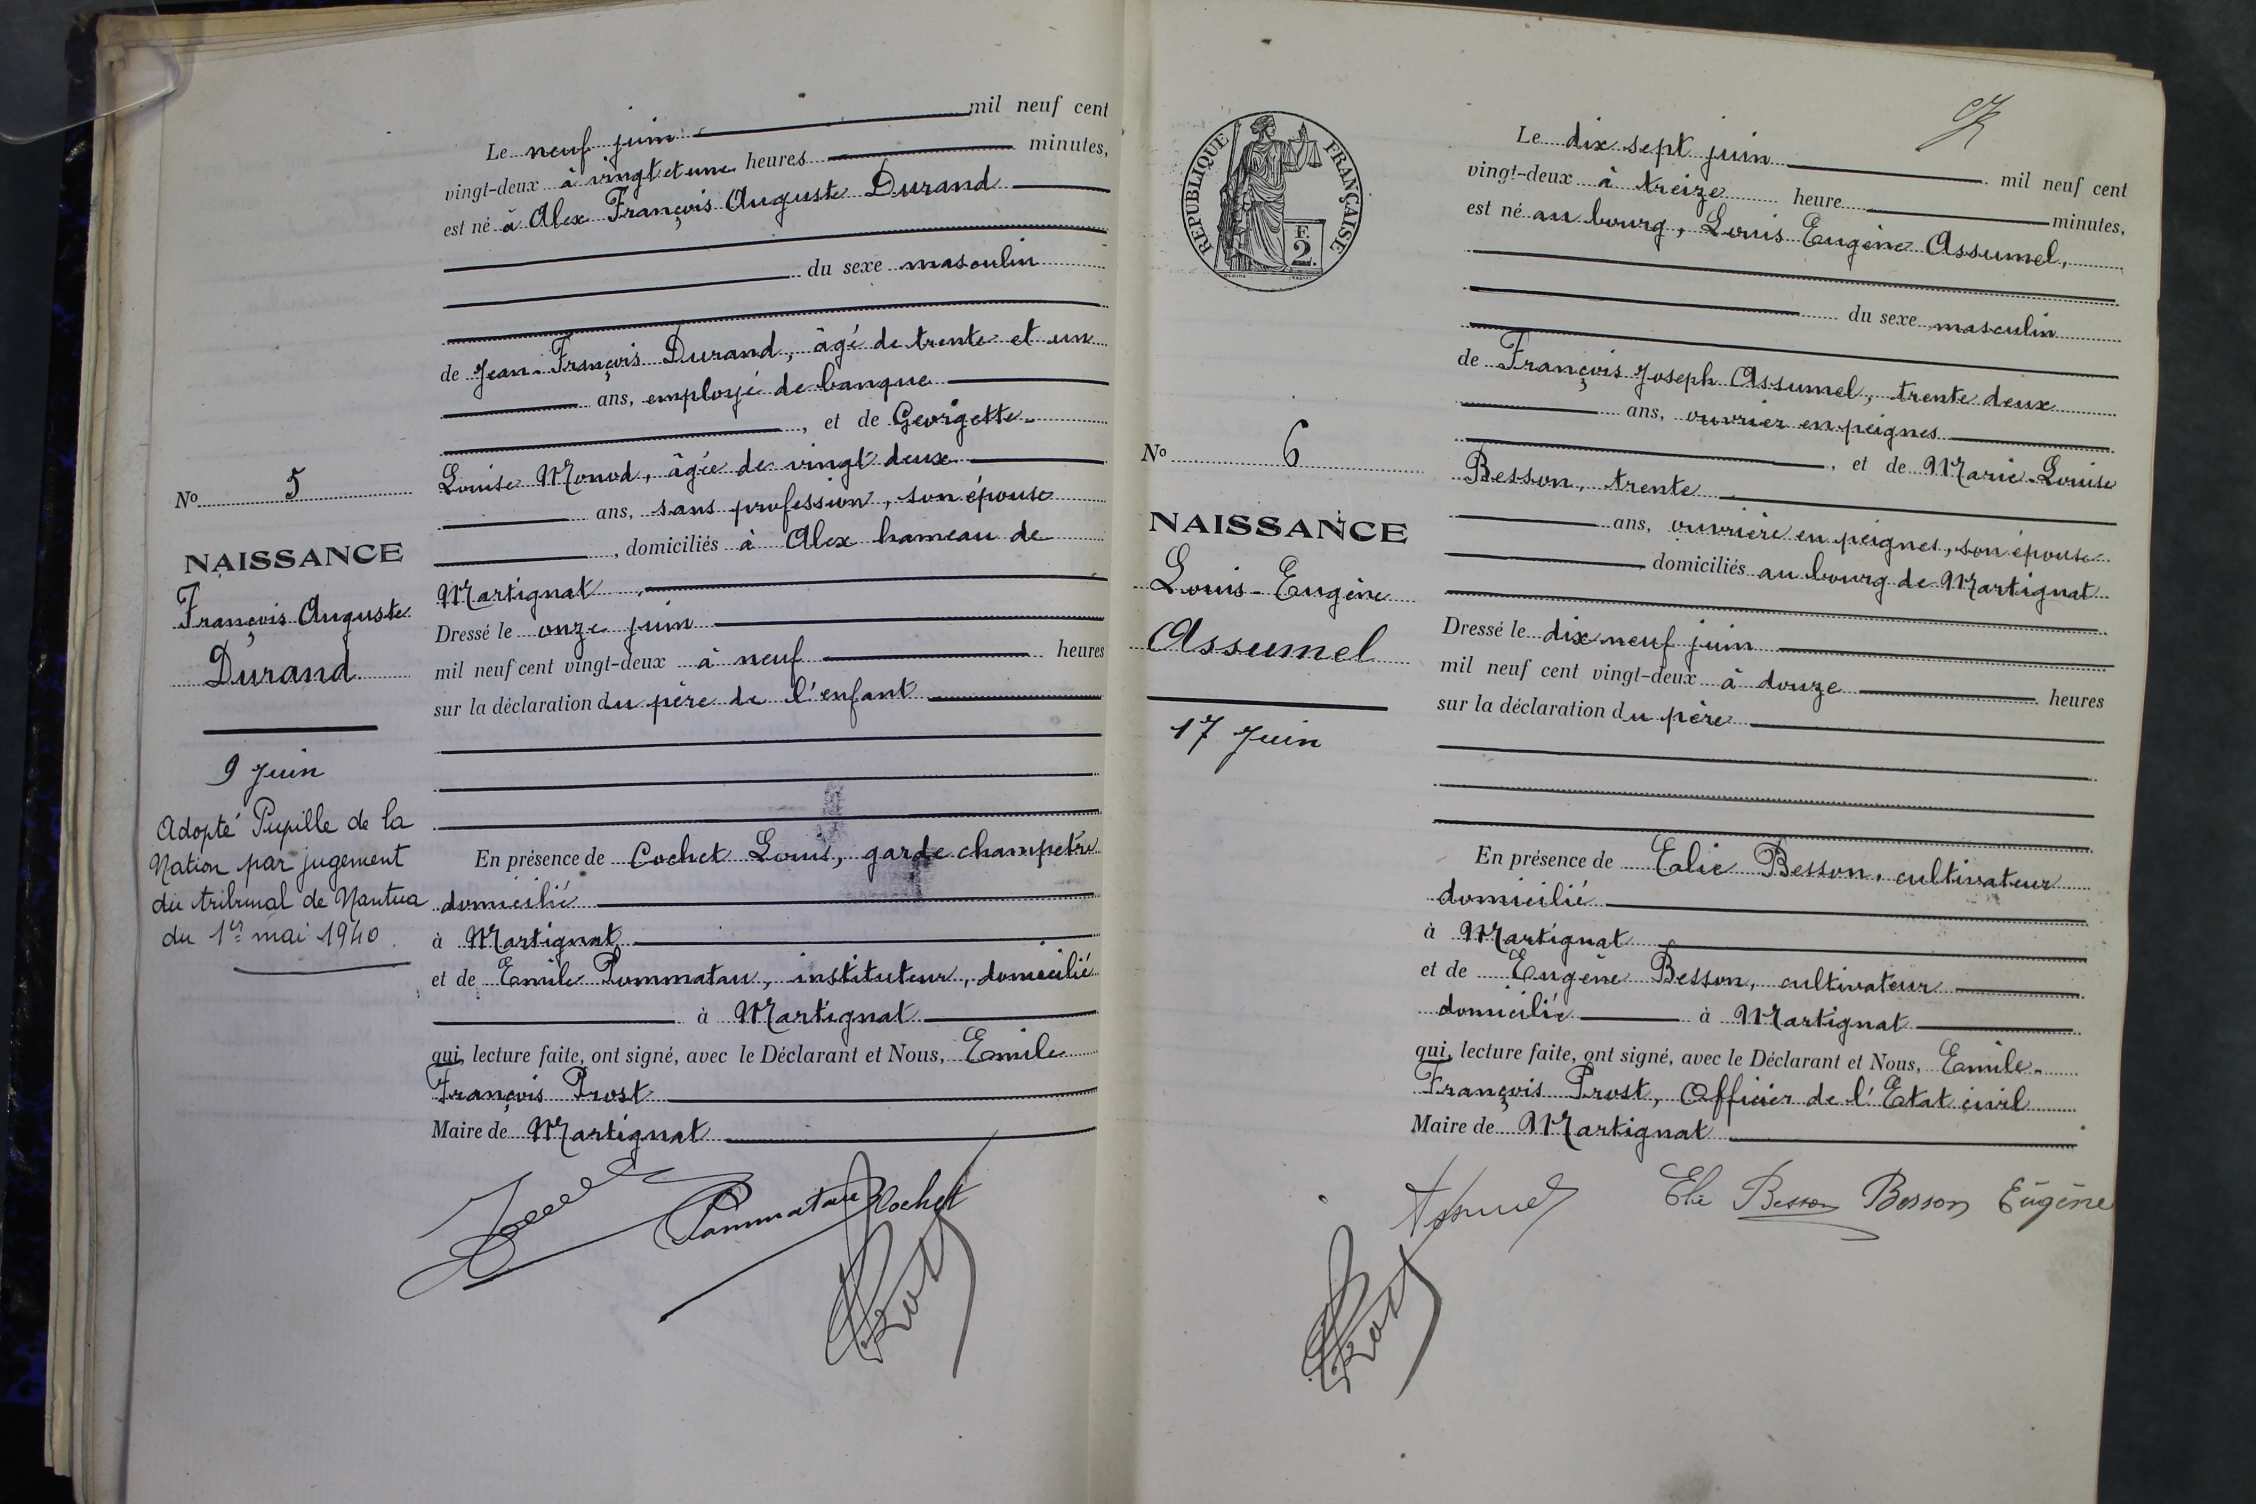 Le neuf juin mil neuf cent
vingt-deux à vingt et une heures minutes,
est né à Alex François Auguste Durand
du sexe masculin
de Jean-François Durand, âgé de trente et un
ans, employé de banque
, et de Georgette-
Louise Monod, âgée de vingt deux
ans, sans profession, son épouse
, domiciliés à Alex hameau de
Martignat
Dressé le onze juin
mil neuf cent vingt-deux à neuf heures
sur la déclaration du père de l'enfant
En présence de Cochet Louis, garde champetre
domicilié
à Martignat
et de Emile Pommatau, instituteur, domicilié
à Martignat
qui, lecture faite, ont signé, avec le Déclarant et Nous, Emile
François Prost
Maire de Martignat
Pommatau Cochet
Prost
No 5
NAISSANCE
François Auguste
Durand
9 Juin
Adopté Pupille de la
Nation par jugement
du tribunal de Nantua
du 1er mai 1940
RÉPUBLIQUE FRANÇAISE
F.
2.
Le dix sept juin mil neuf cent
vingt-deux à treize heure minutes,
est né au bourg, Louis Eugène Assumel,
du sexe masculin
de François Joseph Assumel, trente deux
ans, ouvrier en peignes
, et de Marie-Louise
Besson, trente
ans, ouvrière en peignes, son épouse
domiciliés au bourg de Martignat
Dressé le dix neuf juin
mil neuf cent vingt-deux à douze heures
sur la déclaration du père
En présence de Elie Besson, cultivateur
domicilié
à Martignat
et de Eugène Besson, cultivateur
domicilié à Martignat
qui, lecture faite, ont signé, avec le Déclarant et Nous, Emile-
François Prost, Officier de l'Etat civil
Maire de Martignat
Assumel Elie Besson Besson Eugène
Prost
No 6
NAISSANCE
Louis-Eugène
Assumel
17 Juin